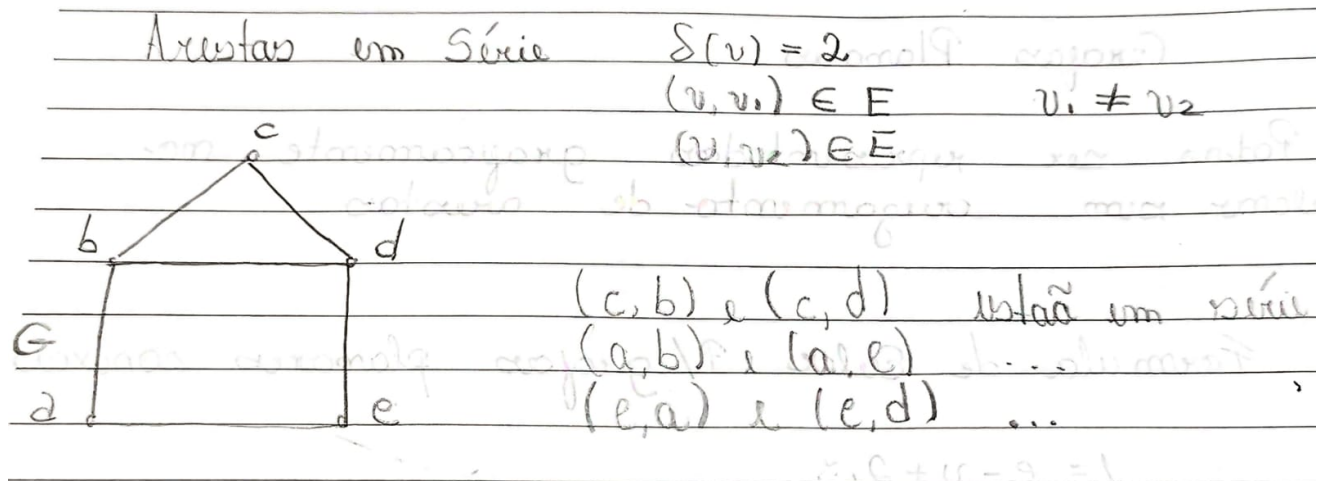 Arestas em Série δ(v) = 2
(v, v₁) ∈ E v₁ ≠ v₂
(v, v₂) ∈ E
c
b d
(c, b) e (c, d) estaõ em série
G (a, b) e (a, e) ...
a e (e, a) e (e, d) ...